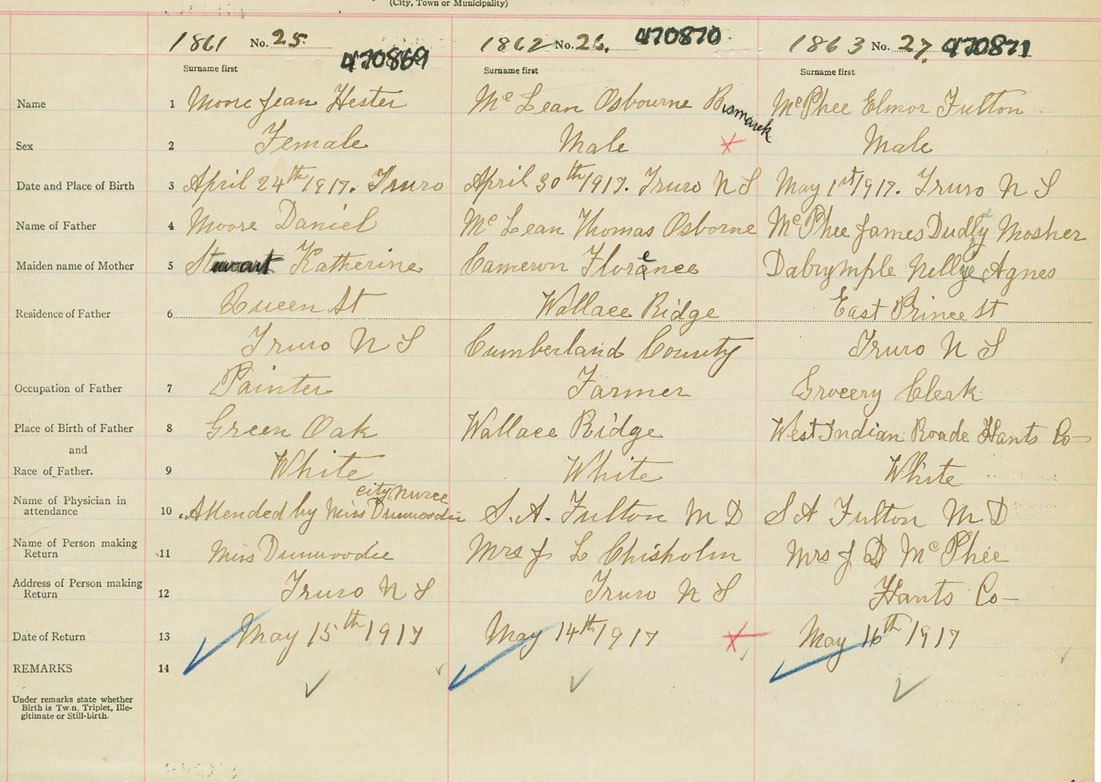 (City, Town or Municipality)
1861 No. 25. 470869
1862 No. 26. 470870
1863 No. 27. 470871
Surname first Surname first Surname first
Name 1 Moore Jean Hester Mc Lean Osbourne Bismarck McPhee Elmor Fulton
Sex 2 Female Male Male
Date and Place of Birth 3 April 24th 1917. Truro April 30th 1917. Truro N S May 1st 1917. Truro N S
Name of Father 4 Moore Daniel Mc Lean Thomas Osborne McPhee James Dudly Mosher
Maiden name of Mother 5 Stewart Katherine Cameron Florence Dalrymple Nelly Agnes
Residence of Father 6 Queen St Wallace Ridge East Prince St
Truro N S Cumberland County Truro N S
Occupation of Father 7 Painter Farmer Grocery Clerk
Place of Birth of Father 8 Green Oak Wallace Ridge West Indian Roade Hants Co
and
Race of Father. 9 White White White
city nurse
Name of Physician in attendance 10 Attended by Miss Dunwoodie S. A. Fulton M D S A Fulton M D
Name of Person making Return 11 Miss Dunwoodie Mrs J L Chisholm Mrs J D McPhee
Address of Person making Return 12 Truro N S Truro N S Hants Co
Date of Return 13 May 15th 1917 May 14th 1917 May 16th 1917
REMARKS 14
Under remarks state whether
Birth is Twin, Triplet, Ille-
gitimate or Still-birth.